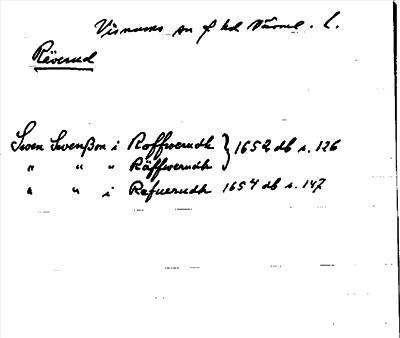 Visnums sn o hd Värml. L.
Räverud
Swen Swenßon i Roffwerudh } 1652 db s. 126
" " " Räffwerudh
" " i Refuerudh 1654 db s. 147